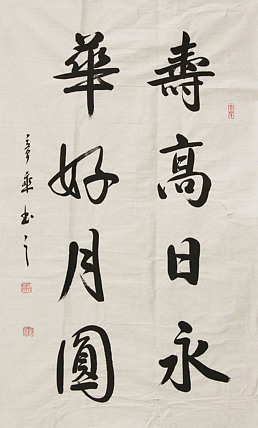 壽高日永
華好月圓